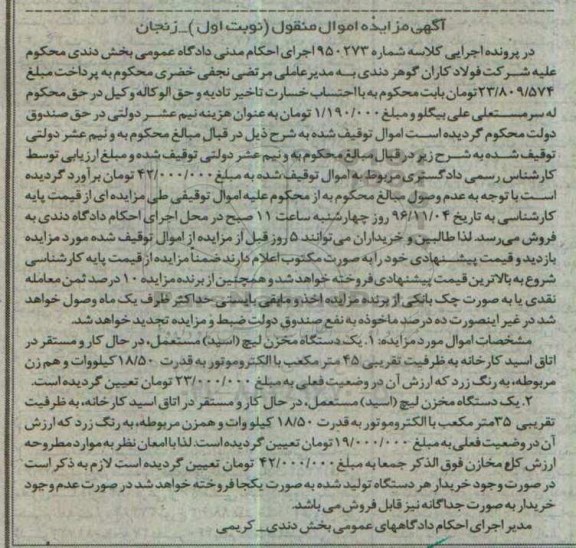 آگهی مزایده اموال منقول (نوبت اول)_زنجان
در پرونده اجرایی کلاسه شماره ۹۵۰۲۷۳ اجرای احکام مدنی دادگاه عمومی بخش دندی محکوم
علیه شرکت فولادکاران گوهر دندی به مدیرعاملی مرتضی نجفی خضری محکوم به پرداخت مبلغ
۲۳/۸۰۹/۵۷۴ تومان بابت محکوم به با احتساب خسارت تاخیر تادیه و حق الوکاله وکیل در حق محکوم
له سرمستعلی علی بیگلو و مبلغ ۱/۱۹۰/۰۰۰ تومان به عنوان هزینه نیم عشر دولتی در حق صندوق
دولت محکوم گردیده است اموال توقیف شده به شرح ذیل در قبال مبالغ محکوم به و نیم عشر دولتی
توقیف شده به شرح زیر در قبال مبالغ محکوم به و نیم عشر دولتی توقیف شده و مبلغ ارزیابی توسط
کارشناس رسمی دادگستری مربوط به اموال توقیف شده به مبلغ ۴۲/۰۰۰/۰۰۰ تومان برآورد گردیده
است با توجه به عدم وصول مبالغ محکوم به از محکوم علیه اموال توقیفی طی مزایده ای از قیمت پایه
کارشناسی به تاریخ ۹۶/۱۱/۰۴ روز چهارشنبه ساعت ۱۱ صبح در محل اجرای احکام دادگاه دندی به
فروش می رسد. لذا طالبین و خریداران می توانند ۵ روز قبل از مزایده از اموال توقیف شده مورد مزایده
بازدید و قیمت پیشنهادی خود را به صورت مکتوب اعلام دارند ضمناً مزایده از قیمت پایه کارشناسی
شروع به بالاترین قیمت پیشنهادی فروخته خواهد شد و همچنین از برنده مزایده ۱۰ درصد ثمن معامله
نقدی یا به صورت چک بانکی از برنده مزایده اخذ و مابقی بایستی حداکثر ظرف یک ماه وصول خواهد
شد در غیر اینصورت ده درصد ماخوذه به نفع صندوق دولت ضبط و مزایده تجدید خواهد شد.
مشخصات اموال مورد مزایده: ۱. یک دستگاه مخزن لیچ (اسید) مستعمل، در حال کار و مستقر در
اتاق اسید کارخانه به ظرفیت تقریبی ۴۵ متر مکعب با الکتروموتور به قدرت ۱۸/۵۰ کیلووات و هم زن
مربوطه، به رنگ زرد که ارزش آن در وضعیت فعلی به مبلغ ۲۳/۰۰۰/۰۰۰ تومان تعیین گردیده است.
۲. یک دستگاه مخزن لیچ (اسید) مستعمل، در حال کار و مستقر در اتاق اسید کارخانه، به ظرفیت
تقریبی ۳۵ متر مکعب با الکتروموتور به قدرت ۱۸/۵۰ کیلو وات و همزن مربوطه، به رنگ زرد که ارزش
آن در وضعیت فعلی به مبلغ ۱۹/۰۰۰/۰۰۰ تومان تعیین گردیده است: لذا با امعان نظر به موارد مطروحه
ارزش کل مخازن فوق الذکر جمعا به مبلغ ۴۲/۰۰۰/۰۰۰ تومان تعیین گردیده است لازم به ذکر است
در صورت وجود خریدار هر دستگاه تولید شده به صورت یکجا فروخته خواهد شد در صورت عدم وجود
خریدار به صورت جداگانه نیز قابل فروش می باشد.
مدیر اجرای احکام دادگاههای عمومی بخش دندی_کریمی